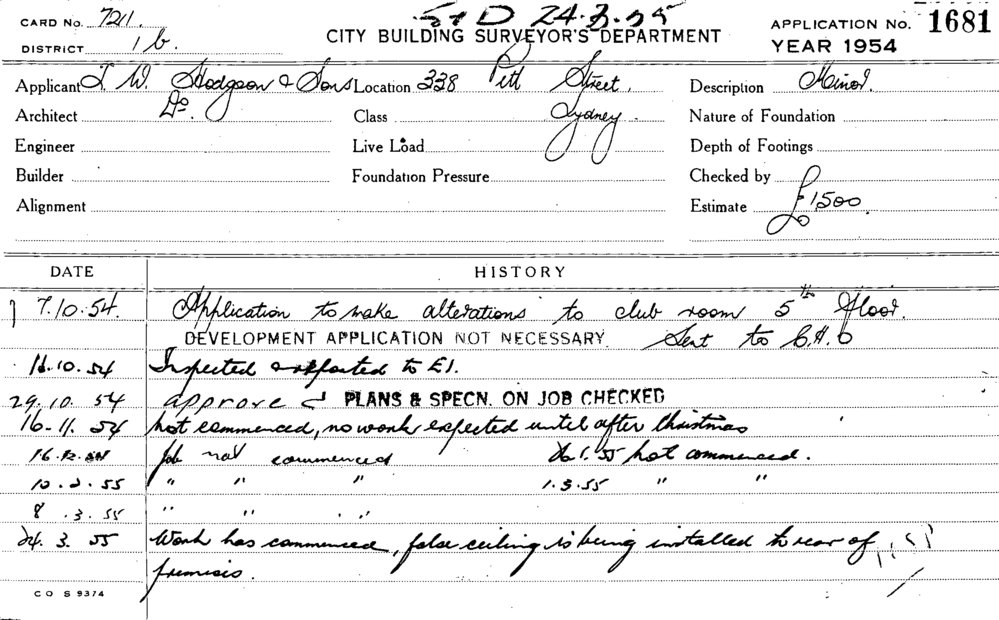 CARD No. 7211.
24.3.55
CITY BUILDING SURVEYOR'S DEPARTMENT
APPLICATION No. 1681
DISTRICT 1 b.
YEAR 1954
Applicant J. W. Hodgson & Sons Location 338 Pitt Street, Description Minor.
Architect Do. Class Sydney Nature of Foundation
Engineer Live Load Depth of Footings
Builder Foundation Pressure Checked by
Alignment Estimate £1500
DATE HISTORY
7.10.54. Application to make alterations to club room 5th floor.
DEVELOPMENT APPLICATION NOT NECESSARY. Sent to C.H.O
11.10.54 Inspected & reported to E1.
29.10.54 approved PLANS & SPECN. ON JOB CHECKED
16.11.54 not commenced, no work expected until after Christmas
16.12.54 Job not commenced 26.1.55 not commenced.
10.2.55 " " " 1.3.55 " "
8.3.55 " " "
24.3.55 Work has commenced, false ceiling is being installed to rear of
premises.
C O S 9374